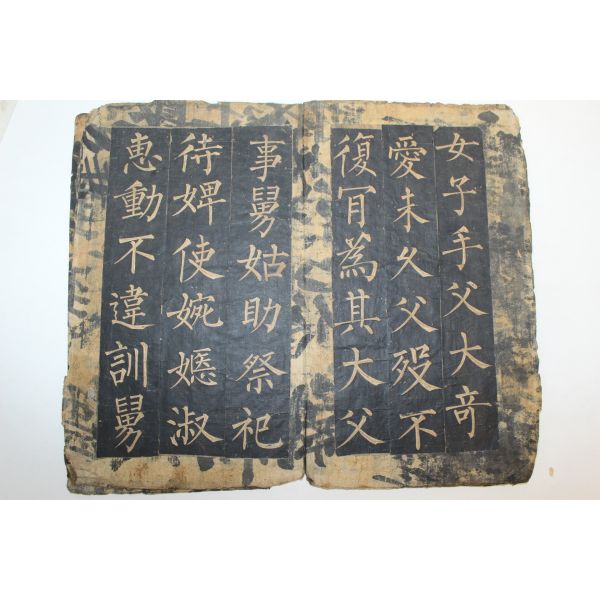 女子手父大奇
愛未久父歿不
復肎為其大父
事舅姑助祭祀
待婢使婉嫕淑
惠動不違訓舅